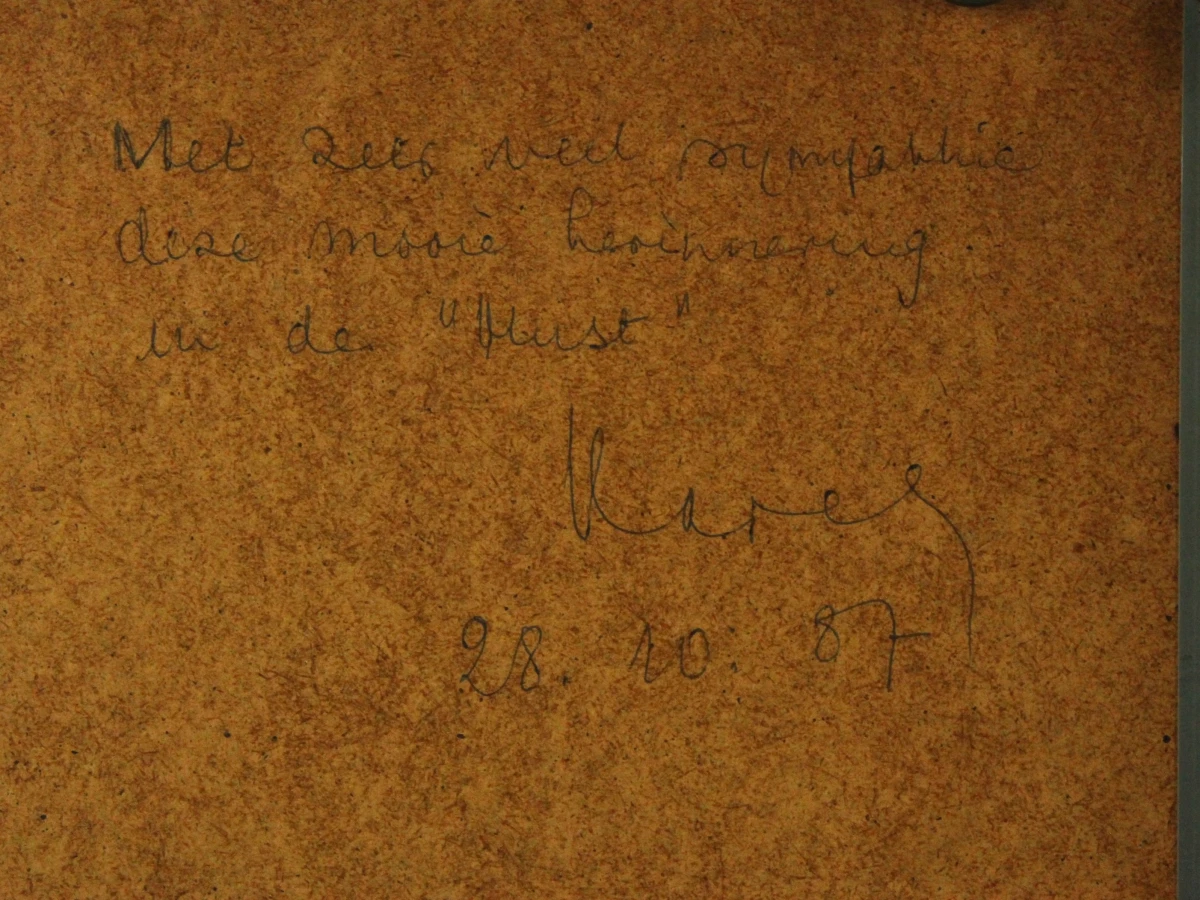 Met zeer veel sympathie
deze mooie herinnering
in de "Must"
Karel
28. 10. 87